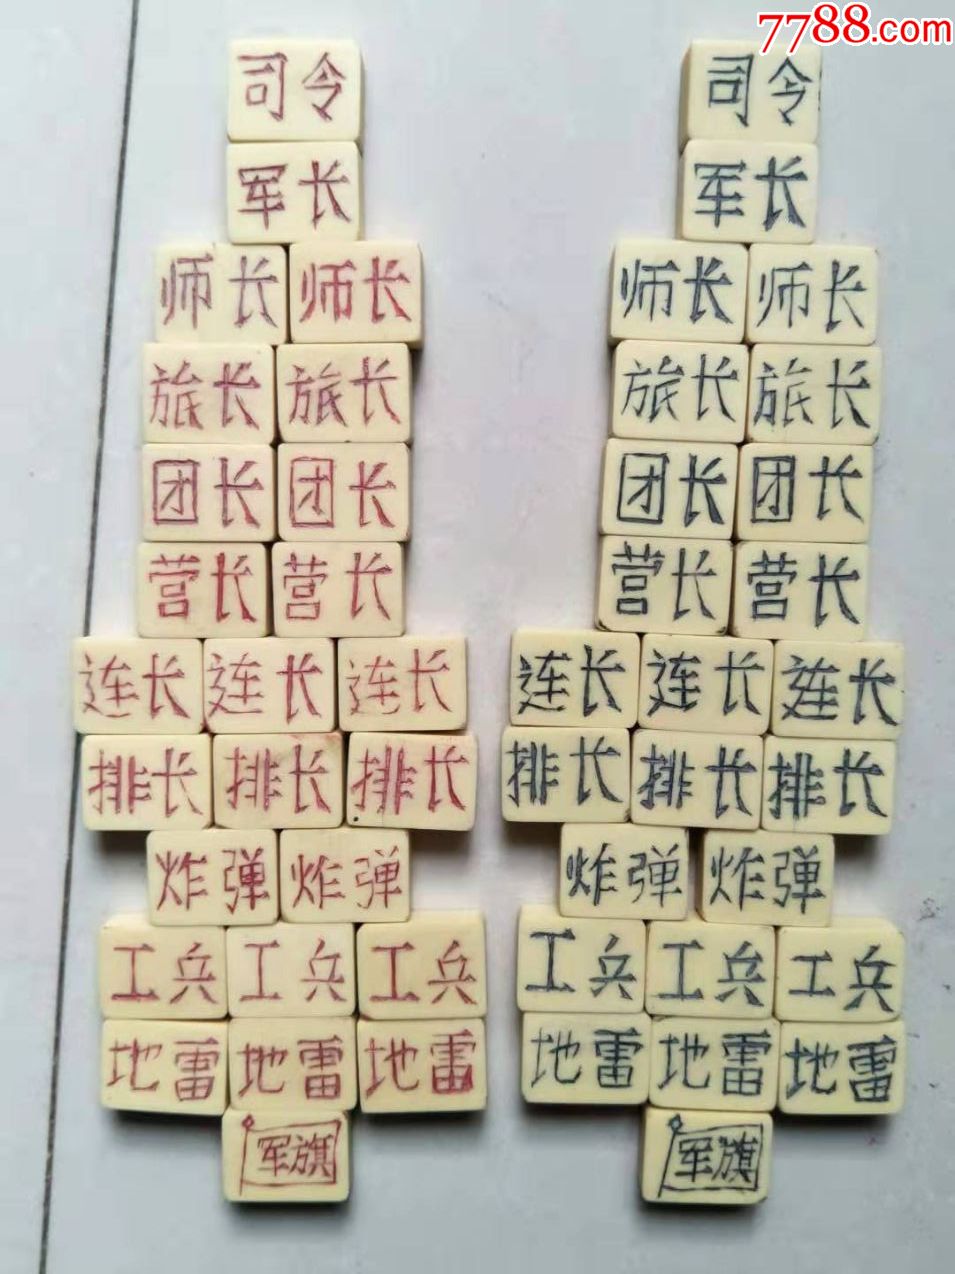 7788.com
司令 司令
军长 军长
师长 师长 师长 师长
旅长 旅长 旅长 旅长
团长 团长 团长 团长
营长 营长 营长 营长
连长 连长 连长 连长 连长 连长
排长 排长 排长 排长 排长 排长
炸弹 炸弹 炸弹 炸弹
工兵 工兵 工兵 工兵 工兵 工兵
地雷 地雷 地雷 地雷 地雷 地雷
军旗 军旗